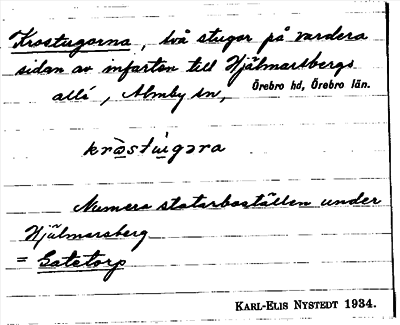 Krostugorna, två stugor på vardera
sidan av infarten till Hjälmarsbergs
allé, Almby sn, Örebro hd, Örebro län.
kròstùgəra
Numera statarbostället under
Hjälmarsberg
= Gatetorp
KARL-ELIS NYSTEDT 1934.